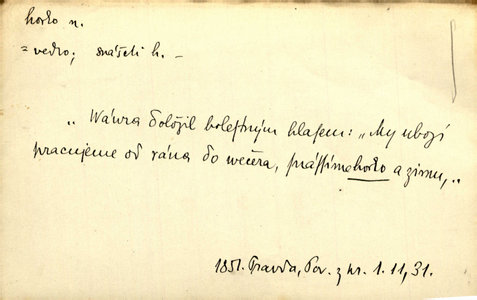 horko n.
= vedro; snášeti h. –
„Wáwra doložil bolestným hlasem: „My ubozí
pracujeme od rána do wečera, snássíme horko a zimu,„
1851. Pravda, Pov. z kr. 1. 11, 31.